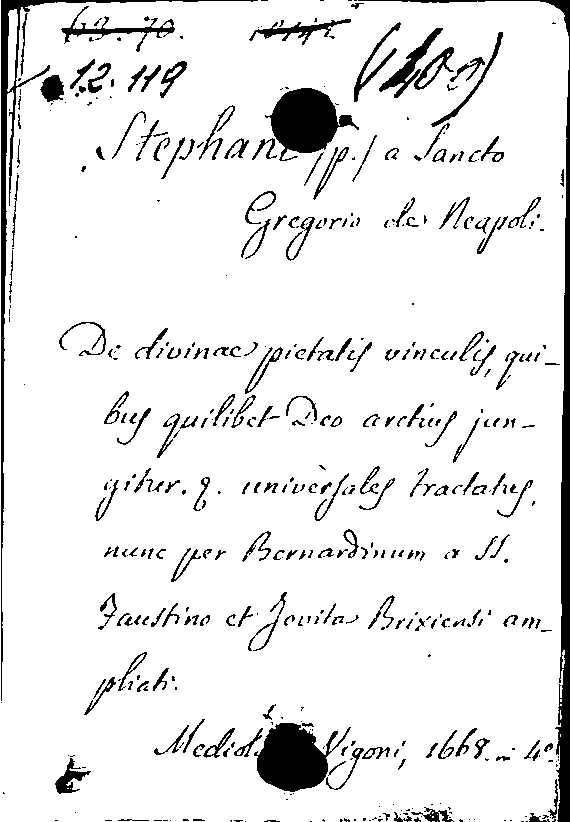 63. 70.
12. 119 (400)
Stephani (p.) a Sancto
Gregorio de Neapoli.
De divinae pietatis vinculis, qui-
bus quilibet Deo arctius jun-
gitur. 9. universales tractatus,
nunc per Bernardinum a SS.
Faustino et Jovita Brixiensi am-
pliati.
Mediol. Vigoni, 1668. in 4º